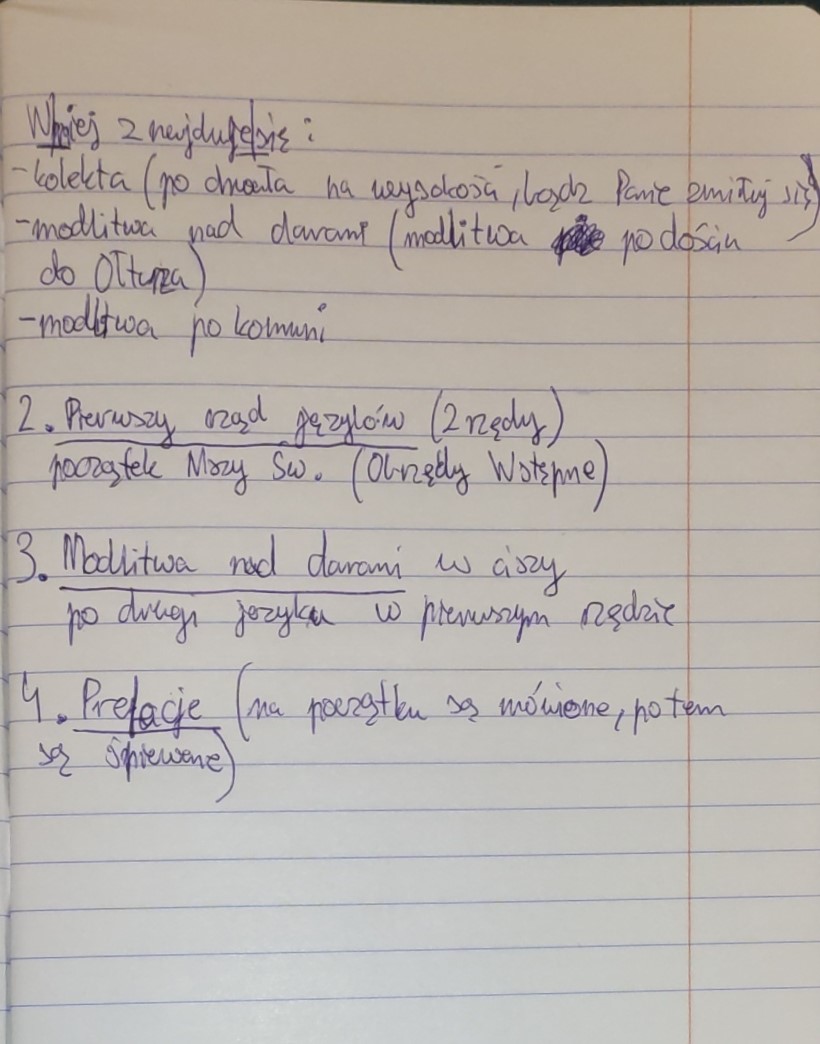 W niej znajduje się:
-kolekta (po chwała na wysokość, bądź Panie zmiłuj się)
-modlitwa nad darami (modlitwa po dojściu
do Ołtarza)
-modlitwa po komuni
2. Pierwszy rząd języków (2 rzędy)
początek Mszy Św. (Obrzędy Wstępne)
3. Modlitwa nad darami w ciszy
po drugi języku w pierwszym rzędzie
4. Prefacje (na początku są mówione, potem
są śpiewane)